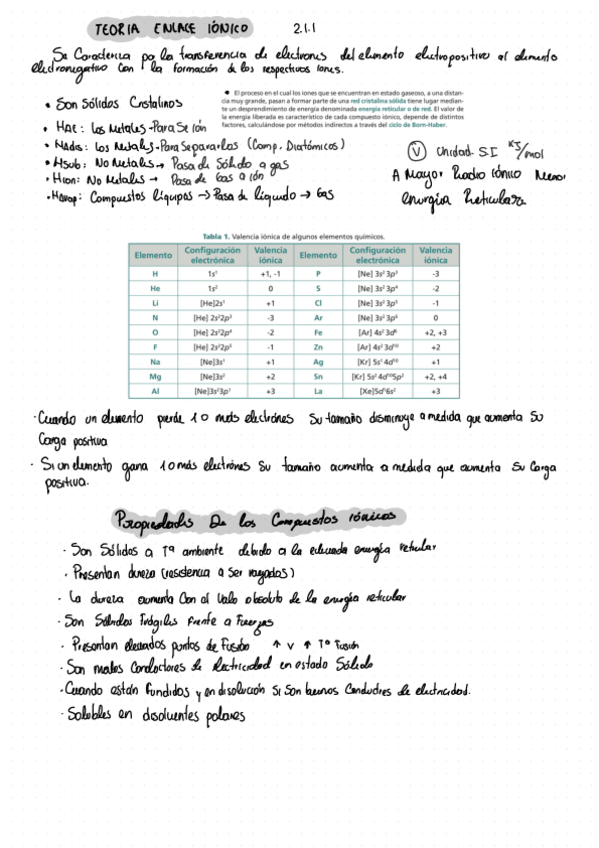 TEORIA ENLACE IÓNICO 2.1.1
Se Caracteriza por la transferencia de electrones del elemento electropositivo al elemento
electronegativo con la formación de los respectivos iones.
• Son Sólidos Cristalinos
● El proceso en el cual los iones que se encuentran en estado gaseoso, a una distan-
cia muy grande, pasan a formar parte de una red cristalina sólida tiene lugar median-
te un desprendimiento de energía denominada energía reticular o de red. El valor de
la energía liberada es característico de cada compuesto iónico, depende de distintos
factores, calculándose por métodos indirectos a través del ciclo de Born-Haber.
los Metales-Para Se ión
los Metales-Para Separarlos (Comp. Diatómicos)
• Hsub: No Metales → Pasa de Sólido a gas
• Hion: No Metales → Pasa de Gas a ión
Compuestos líquidos → Pasa de líquido → Gas
Unidad. S.I KJ/mol
A Mayor Radio iónico Menor
energía Reticular
Tabla 1. Valencia iónica de algunos elementos químicos.
Elemento Configuración electrónica Valencia iónica Elemento Configuración electrónica Valencia iónica
H 1s¹ +1, -1 P [Ne] 3s² 3p³ -3
He 1s² 0 S [Ne] 3s² 3p⁴ -2
Li [He]2s¹ +1 Cl [Ne] 3s² 3p⁵ -1
N [He] 2s²2p³ -3 Ar [Ne] 3s² 3p⁶ 0
O [He] 2s²2p⁴ -2 Fe [Ar] 4s² 3d⁶ +2, +3
F [He] 2s²2p⁵ -1 Zn [Ar] 4s² 3d¹⁰ +2
Na [Ne]3s¹ +1 Ag [Kr] 5s¹ 4d¹⁰ +1
Mg [Ne]3s² +2 Sn [Kr] 5s² 4d¹⁰5p² +2, +4
Al [Ne]3s²3p¹ +3 La [Xe]5d¹6s² +3
· Cuando un elemento pierde 1 o más electrónes Su tamaño disminuye a medida que aumenta Su
Carga positiva
· Si un elemento gana 1 o más electrónes Su tamaño aumenta a medida que aumenta Su Carga
positiva.
Propiedades De los Compuestos iónicos
· Son Sólidos a Tª ambiente debido a la elevada energía reticular
· Presentan dureza (resistencia a Ser rayados)
· La dureza aumenta Con el Valor absoluto de la energía reticular
· Son Sólidos frágiles frente a Fuerzas
· Presentan elevados puntos de Fusión ↑ V ↑ Tª Fusión
· Son malos Conductores de electricidad en estado Sólido
· Cuando están Fundidos y en disolución Si Son buenos Conductores de electricidad.
· Solubles en disolventes polares